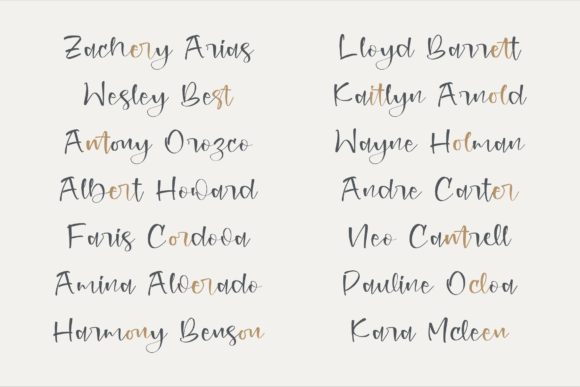 Zachery Arias
Wesley Best
Antony Orozco
Albert Howard
Faris Cordova
Amina Alverado
Harmony Benson
Lloyd Barrett
Kaitlyn Arnold
Wayne Holman
Andre Carter
Neo Cantrell
Pauline Ocloa
Kara Mcleen